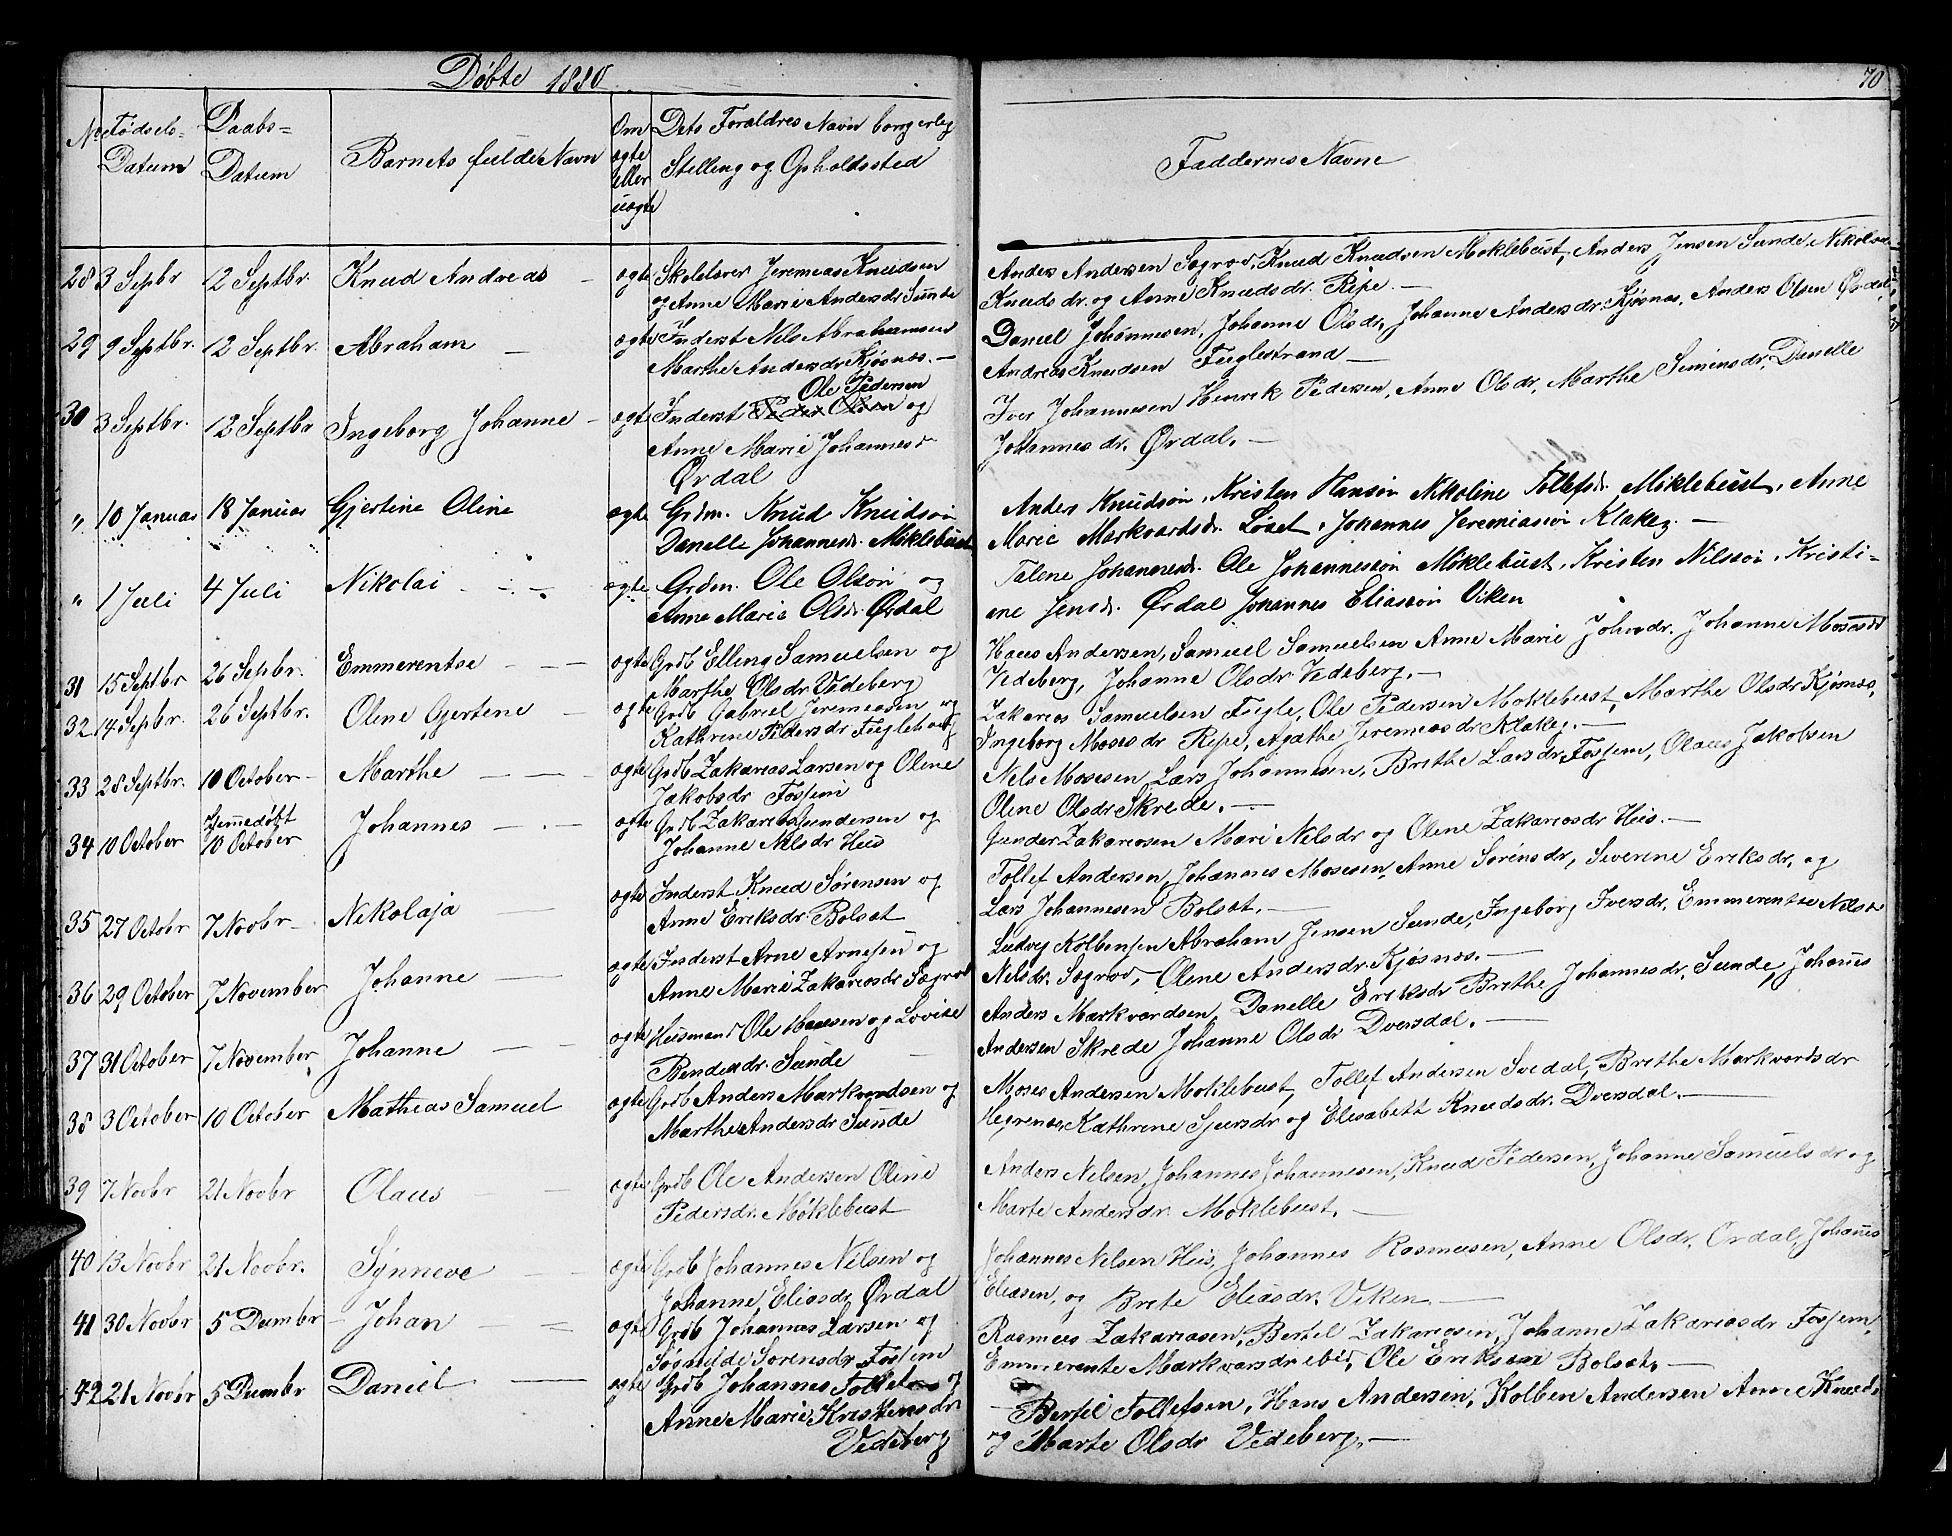 Døbte 1880
70
No Fødsels= Datum
Daabs= Datum
Barnets fulde Navn
Om ægte eller uægte
Dets Foraldres Navn borgerleg
Stelling og Opholdssted
Faddernes Navne
28 3 Sepbr 12 Septbr. Knud Andreas - ægte Skolelærer Jeremias Knudsen
og Anne Marie Andersdr Sunde
Anders Andersen Sograd, Knud Knudsen Moklebust, Anders Jensen Sunde, Nikolea
Knudsdr. og Anne Knudsdr. Ripe. —
29 9 Septbr. 12 Septbr. Abraham — ægte Inderst Nils Abrahamsen
Marthe Andersdr Kjøsnæs. —
Daniel Johannesen, Johanne Olsdr, Johanne Andersdr. Kjøsnæs, Anders Olsen Ørdal,
Andreas Knudsen Fuglestrand —
30 3 Septbr. 12 Septbr Ingeborg Johanne - ægte Inderst Peder Olsen og
Ole Pedersen
Anne Marie Johannesdr
Ørdal
Iver Johannesen Henrik Pedersen, Anne Olsdr, Marthe Simensdr, Danelle
Johannesdr. Ørdal. —
" 10 Januar 18 Januar Gjertine Oline ægte Grdm. Knud Knudsøn
Danelle Johannesdr. Møklebust
Anders Knudsøn, Kristen Hansøn Nikoline Tollefsdr. Møklebust, Anne
Marie Markvardsdr. Løset, Johannes Jeremiasøn Klakeg. —
" 1 Juli 4 Juli Nikolai ægte Grdm. Ole Olsøn og
Anne Marie Olsdr Ørdal
Talene Johannesdr. Ole Johannessøn Møklebust, Kristen Nilssøn, Kristi-
ane Jensdr. Ørdal Johannes Eliassøn Viken
31 15 Septbr 26 Sepbr. Emmerentse — ægte Grdb Elling Samuelsen og
Marthe Olsdr Vedeberg
Hans Andersen, Samuel Samuelsen Anne Marie Johndr. Johanne Mosesdr
Vedeberg, Johanne Olsdr Vedeberg. —
32 14 Sepbr. 26 Septbr. Oline Gjertene — ægte Grdb Gabriel Jeremiasen og
Kathrine Pedersdr Fuglehaug
Zakarias Samuelsen Fugle, Ole Pedersen Moklebust, Marthe Olsdr Kjøsnæs,
Ingeborg Mosesdr Ripe, Agathe Jeremiasdr Klakeg. —
33 28 Septbr. 10 October - Marthe — ægte Grdb Zakarias Larsen og Olene
Jakobsdr Fossjem
Nels Mosesen Lars Johannesen, Brethe Larsdr, Fossjem, Olaus Jakobsen
Oline Olsdr Skrede. —
34 10 October Hjemedøbt 10 October Johannes — ægte Grdb Zakarias Gundersen og
Johanne Nilsdr Hus
Gunder Zakariasen Mari Nilsdr og Olene Zakariasdr Hus. —
35 27 Octobr 7 Novbr - Nekolaja — ægte Inderst Knud Sørensen og
Anne Eriksdr. Bolsæt
Tollef Andersen, Johannes Mosesen, Anne Sørensdr, Siverine Eriksdr, og
Lars Johannesen Bolsæt. —
36 29 October 7 November Johanne — ægte Inderst Arne Arnesen og
Anne Marie Zakariasdr Sægrov
Ludvig Kolbensen Abraham Jensen Sunde, Ingeborg Iversdr. Emmerentse Nilsdr
Nilsdr. Sograd, Olene Andersdr. Kjøsnæs. —
37 31 October 7 November Johanne — ægte Husmand Ole Hansen og Lovise
Bendixdr. Sunde
Anders Markvardsen, Danelle Eriksdr Brethe Johannesdr. Sunde, Johanes
Andersen Skrede Johanne Olsdr Dversdal. —
38 3 October 10 October Mathias Samuel ægte Grdb Anders Markvardsen og
Marthe Andersdr Sunde
Moses Andersen Moklebust, Tollef Andersen Svedal, Brethe Markvardsdr
Hegrenæs, Kathrine Sjursdr og Elisabett Knudsdr. Dversdal. —
39 7 Novbr 21 Novbr Olaus — ægte Grdb Ole Andersen Oline
Pedersdr. Møklebust
Anders Nelsen, Johannes Johannesen, Knud Pedersen, Johanne Samuelsdr og
Marte Andersdr Moklebust. —
40 13 Novbr 21 Novbr. Synneve — ægte Grdb Johannes Nelsen og
Johanne Eliasdr, Ørdal
Johannes Nelsen Hus, Johannes Rasmusen, Anne Olsdr. Ørdal, Johanes
Eliasen, og Brete Eliasdr. Viken. —
41 30 Novbr 5 Dcembr - Johan — ægte Grdb Johannes Larsen og
Søgnilde Sorensdr Fossjem
Rasmus Zakariasen, Bertel Zakariasen, Johanne Zakariasdr Fossjem,
Emmerente Markvarsdr ebid, Ole Eriksen Bolsæt. —
42 21 Novbr 5 Dcembr Daniel — ægte Grdb Johannes Tollefsen og
Anne Marie Kristensdr
Vedeberg
— Bertil Tollefsen, Hans Andersen, Kolben Andersen Anne Knudsdr
og Marte Olsdr Vedeberg. —